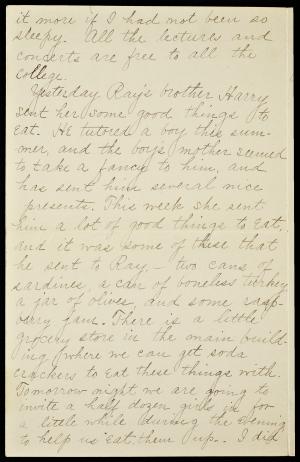 it more if I had not been so
sleepy. All the lectures and
concerts are free to all the
college.
Yesterday Ray's brother Harry
sent her some good things to
eat. He tutored a boy this sum-
mer, and the boy's mother seemed
to take a fancy to him, and
has sent him several nice
presents. This week she sent
him a lot of good things to eat,
and it was some of these that
he sent to Ray, - two cans of
sardines, a can of boneless turkey
a jar of olives, and some rasp-
berry jam. There is a little
grocery store in the main build-
ing where we can get soda
crackers to eat these things with.
Tomorrow night we are going to
invite a half dozen girls in for
a little while during the evening
to help us eat them up. I did